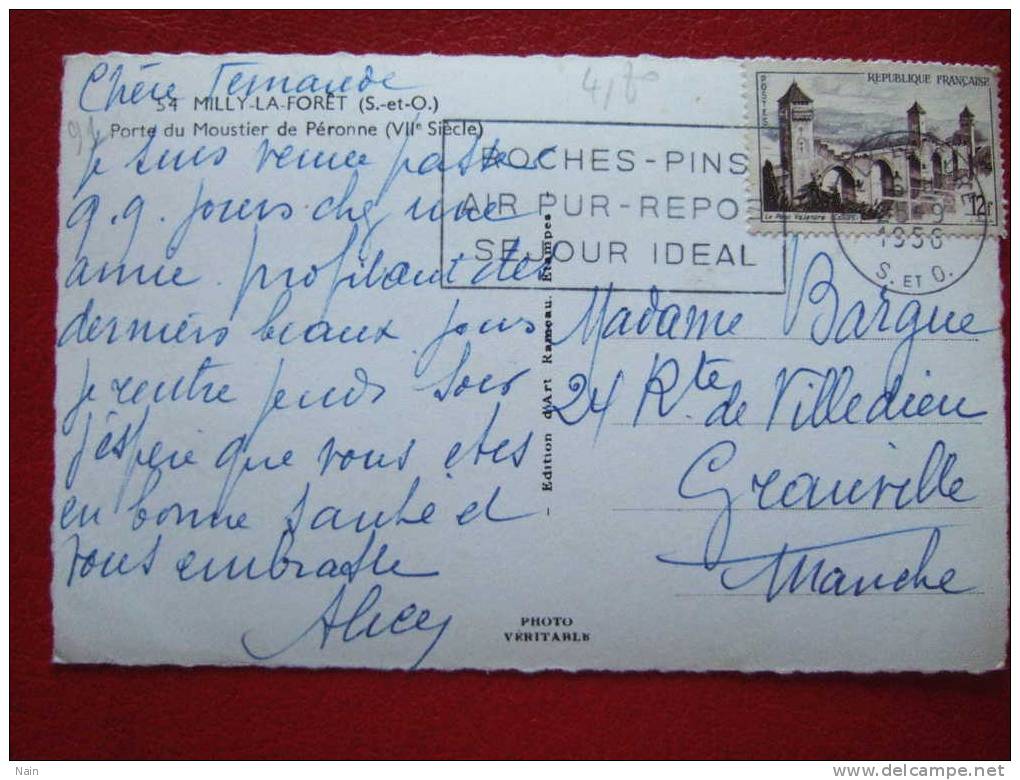 Chère Fernande
54 MILLY-LA-FORÊT (S.-et-O.)
Porte du Moustier de Péronne (VIIe Siècle)
je suis venue passer
q.q. jours chez une
amie profitant des
derniers beaux jours
je rentre jeudi soir
j'espère que vous êtes
en bonne santé et
vous embrasse
Alicey
4/70
ROCHES-PINS
AIR PUR-REPOS
SEJOUR IDEAL
POSTES
REPUBLIQUE FRANÇAISE
12f
9
1956
S. ET O.
- Edition d'Art Rameau. Etampes -
Madame Bargue
24 Rte de Villedieu
Granville
Manche
PHOTO
VÉRITABLE
Nain
www.delcampe.net